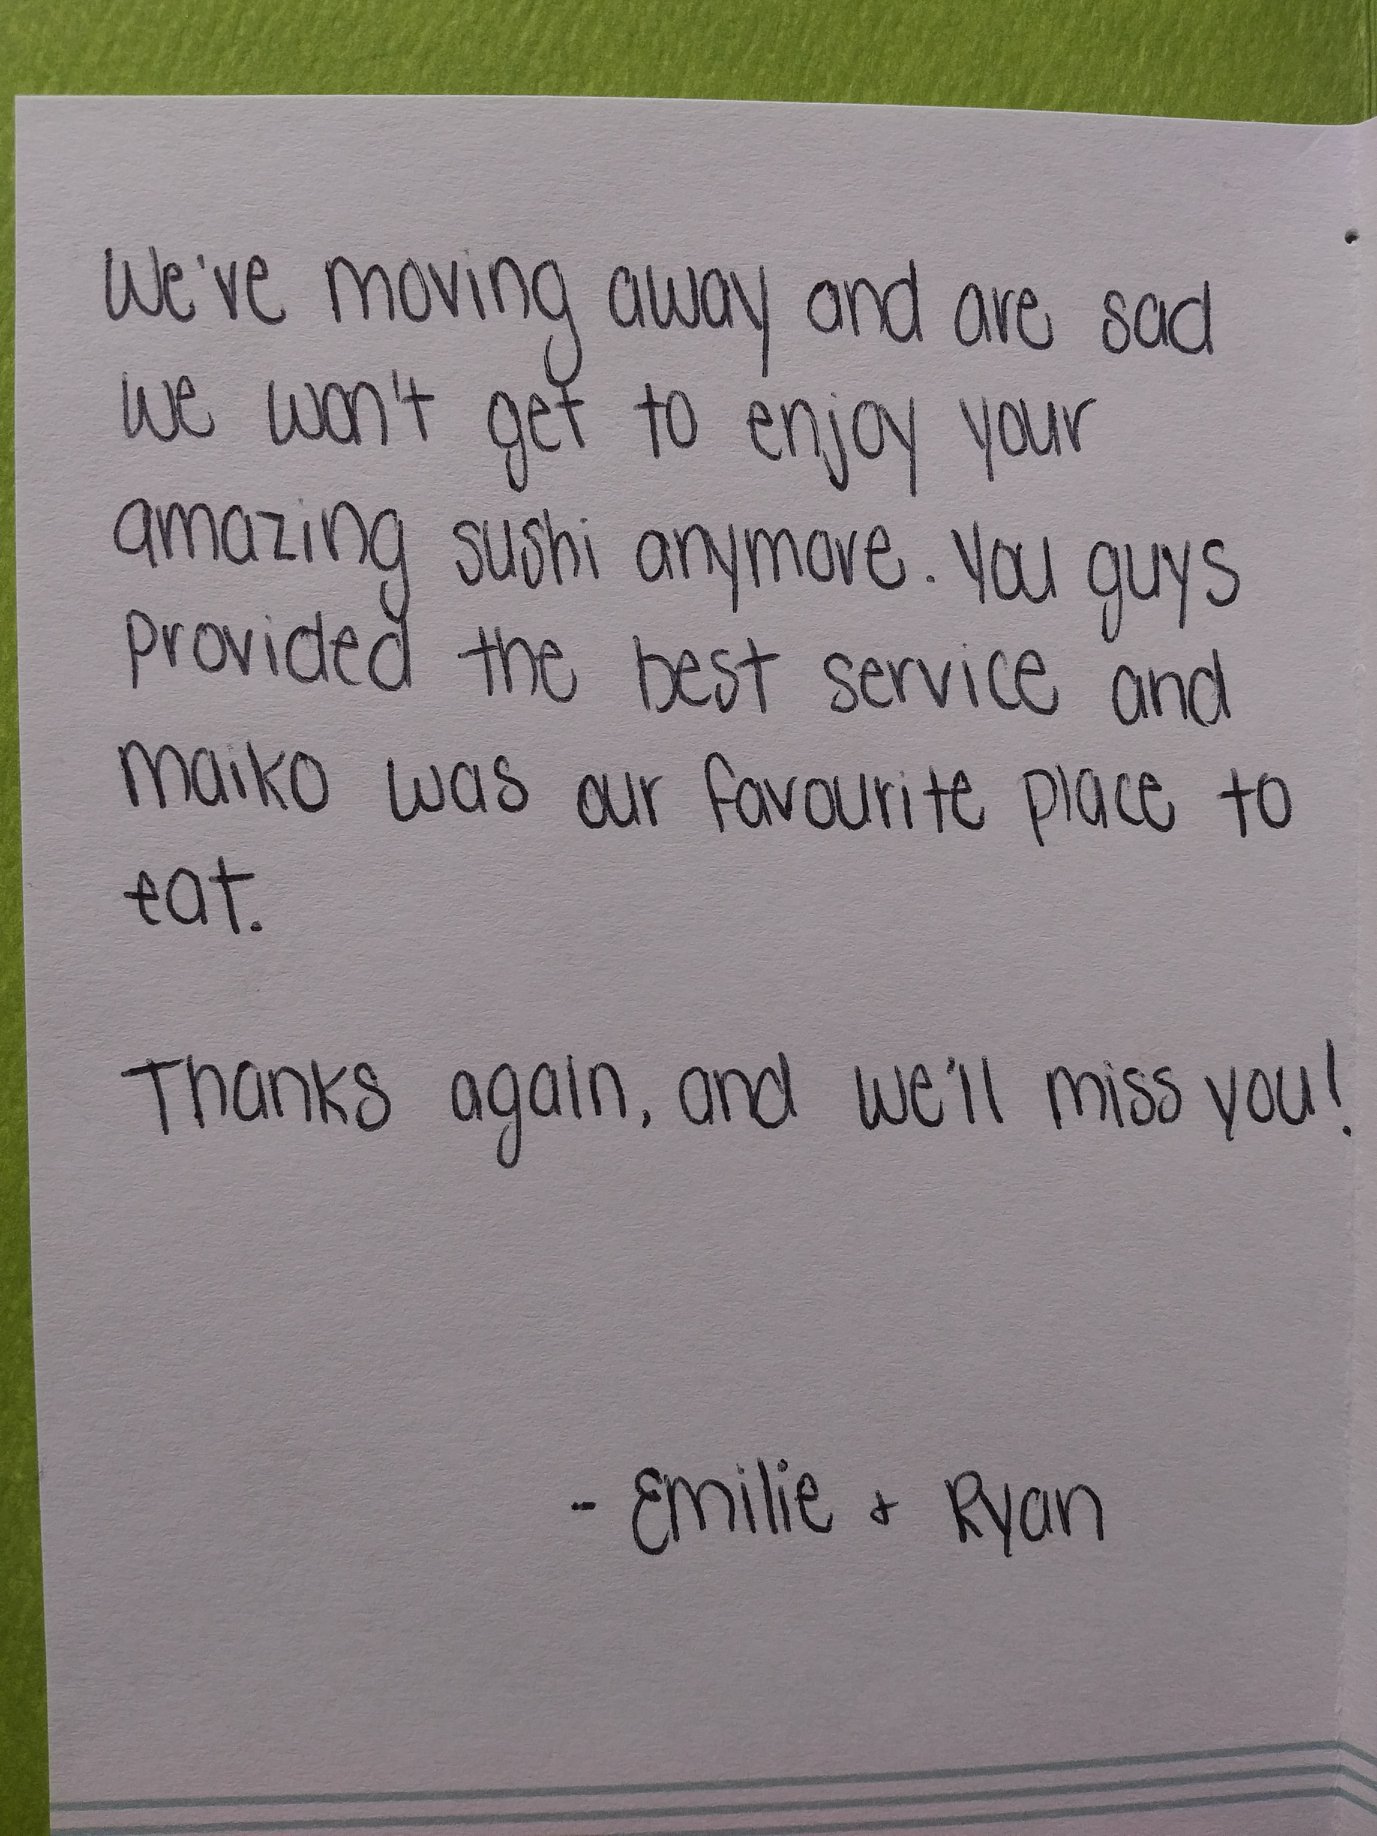 We've moving away and are sad
we won't get to enjoy your
amazing sushi anymore. You guys
provided the best service and
maiko was our favourite place to
eat.
Thanks again, and we'll miss you!
- Emilie + Ryan